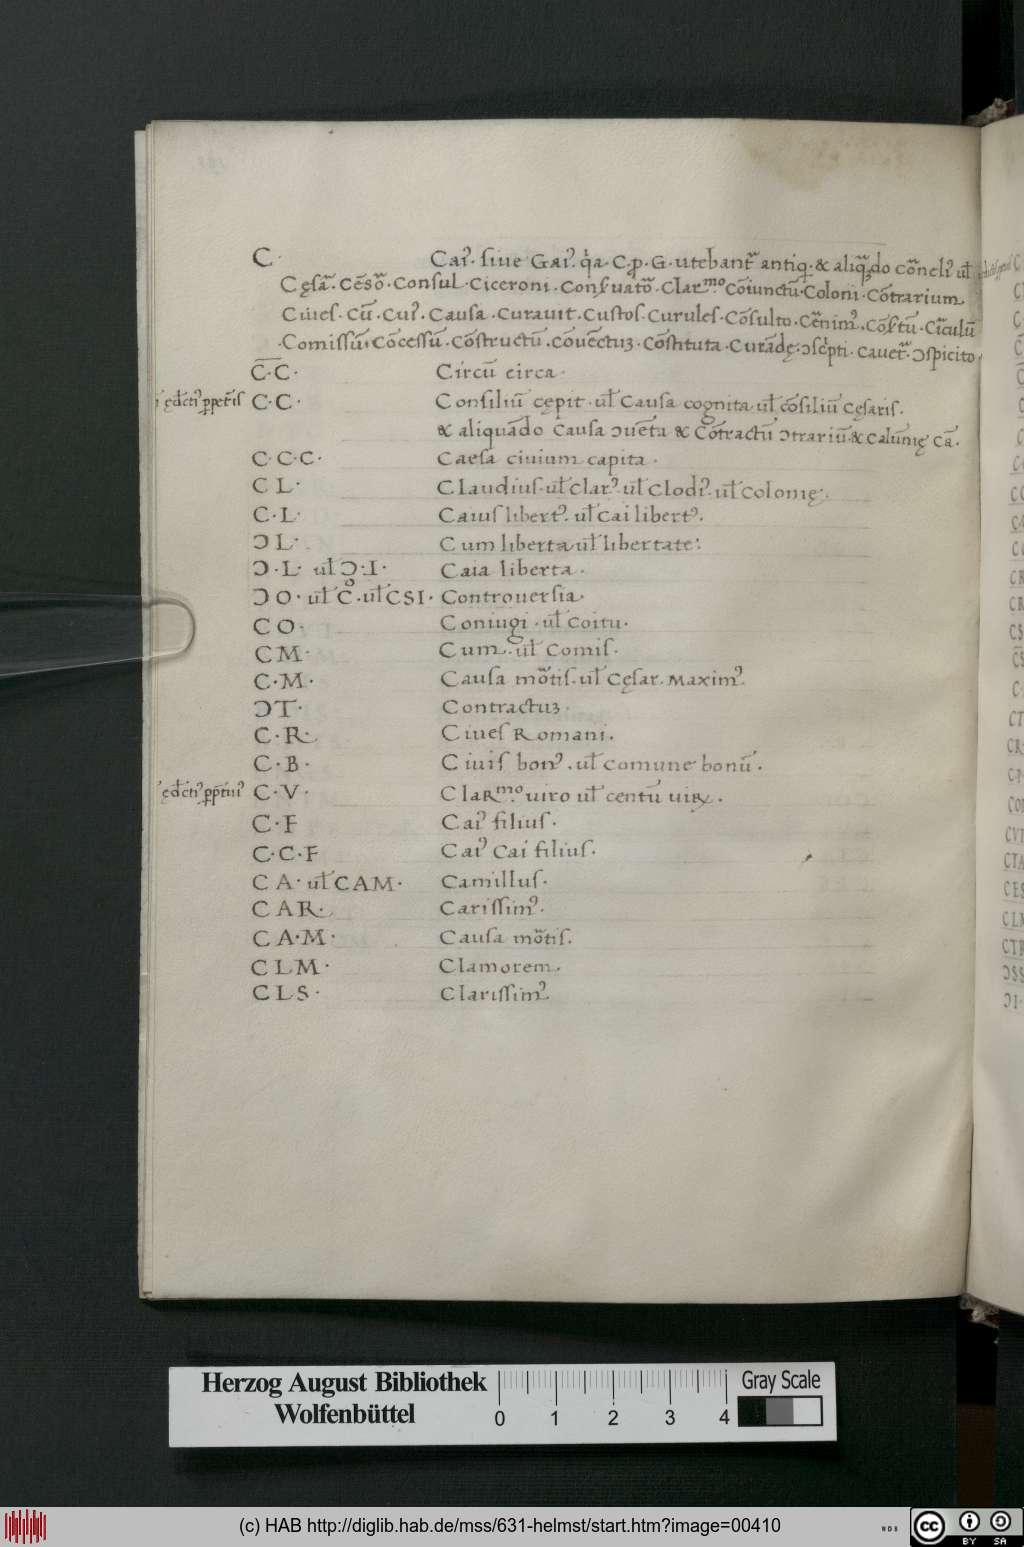 C· Caiꝰ. siue Gaiꝰ. qͥa C. p. G. utebant᷑ antiq̄. & aliqu̅do
Cęsā. Cēsō. Consul. Ciceroni. Conẜuatō. Clar.mo Cōiunctū. Coloni. Cōtrarium
Ciues. Cū. Cuiꝰ. Causa. Curauit. Custos. Curules. Cōsulto.
Comissū. Cōcessū. Cōstructū. Cōuectuꝫ. Cōstituta. Curādę.
C̅·C̅· Circū circa.
C·C· Consiliū cępit. ul̄ Causa cognita. ul̄ cōsiliū Cęsaris.
& aliquādo Causa ɔuēta & Cōtractū ɔtrariū. & Calūnię cā.
C·C·C· Caesa ciuium capita.
C L· Claudius. ul̄ Clarꝰ. ul̄ Clodiꝰ. ul̄ Colonię.
C·L· Caius libertꝰ. ul̄ Cai libertꝰ.
Ɔ L· Cum liberta ul̄ libertate:
Ɔ·L· ul̄ Ɔ·I· Caia liberta.
Ɔ O· ul̄ C̊. ul̄ CSI· Controuersia.
C O· Coniugi. ul̄ Coitu.
C M· Cum. ul̄ Comis.
C·M· Causa mōtis. ul̄ Cęsar. Maximꝰ.
Ɔ T· Contractuꝫ.
C·R· Ciues Romani.
C·B· Ciuis bonꝰ. ul̄ Comune bonū.
C·V· Clar.mo uiro ul̄ centū uiꝝ.
C·F Caiꝰ filius.
C·C·F Caiꝰ Cai filius.
C A· ul̄ CAM· Camillus.
C AR· Carissimꝰ.
C A·M· Causa mōtis.
C L M· Clamorem.
C L S· Clarissimꝰ
Herzog August Bibliothek
Wolfenbüttel
0 1 2 3 4
Gray Scale
(c) HAB http://diglib.hab.de/mss/631-helmst/start.htm?image=00410
WDB
cc BY SA